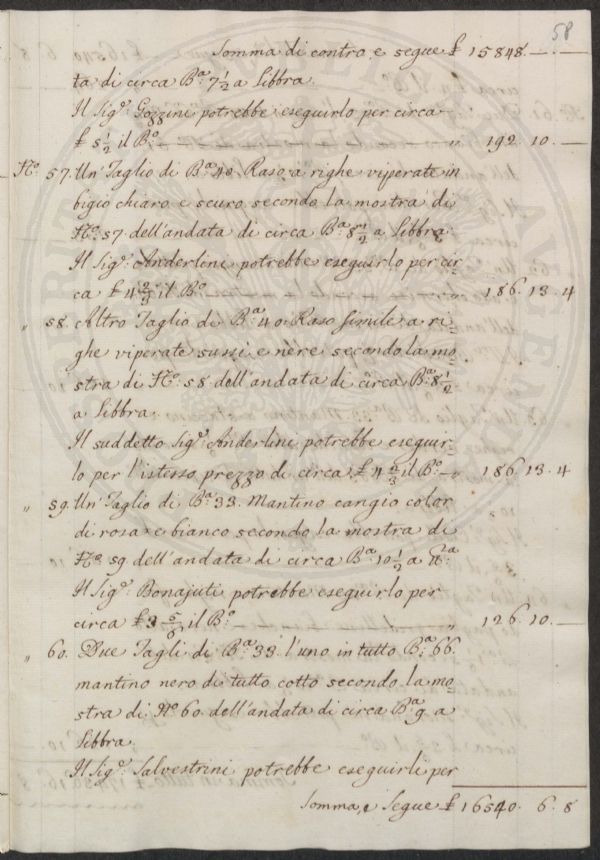 58
Somma di contro, e segue £ 15848.—.—
ta di circa Bª 7½ a Libbra.
Il Sigʳ. Gozzini potrebbe eseguirlo per circa
£ 5½ il Bº.— — — — — „ 192. 10.—
Nº. 57. Un' Taglio di Bª 40. Raso a righe viperate in
bigio chiaro e scuro secondo la mostra di
Nº. 57 dell'andata di circa Bª 8½ a Libbra.
Il Sigʳ. Anderlini potrebbe eseguirlo per cir-
ca £ 4⅔ il Bº.— — — — „ 186. 13. 4
„ 58. Altro Taglio di Bª 40. Raso simile a ri-
ghe viperate sussi e nere secondo la mo-
stra di Nº. 58 dell'andata di circa Bª 8½
a Libbra.
Il suddetto Sigʳ. Anderlini potrebbe eseguir-
lo per l'istesso prezzo di circa £ 4⅔ il Bº.— „ 186. 13. 4
„ 59. Un' Taglio di Bª 33. Mantino cangio color
di rosa e bianco secondo la mostra di
Nº. 59 dell'andata di circa Bª 10½ a lbª
Il Sigʳ. Bonajuti potrebbe eseguirlo per
circa £ 3⅚ il Bº.— — — — „ 126. 10.—
„ 60. Due Tagli di Bª 33. l'uno in tutto Bª 66.
mantino nero di tutto cotto secondo la mo-
stra di Nº. 60 dell'andata di circa Bª 9 a
Libbra.
Il Sigʳ. Salvestrini potrebbe eseguirli per
Somma, e Segue £ 16540. 6. 8